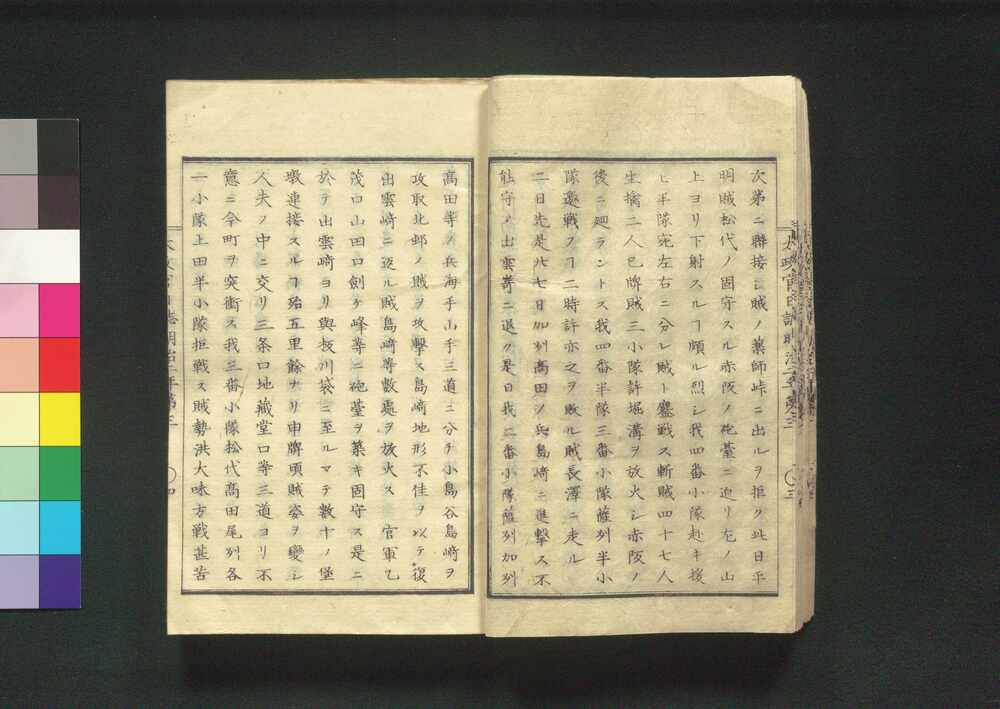 次第ニ聯接シ賊ノ薬師峠ニ出ルヲ拒ク此日平
明賊松代ノ固守スル赤阪ノ砲臺ニ迫リ左ノ山
上ヨリ下射スルヿ頗ル烈シ我四番小隊赴キ援
ヒ半隊宛左右ニ分レ賊ト鏖戦ス斬賊四十七人
生擒二人巳牌賊三小隊許堀溝ヲ放火シ赤阪ノ
後ニ廻ラントス我四番半隊三番小隊薩列半小
隊邀戦フヿ二時許亦之ヲ敗ル賊長澤ニ走ル
二日先是廾七日加列高田ノ兵島﨑ニ進撃ス不
能守メ出雲嵜ニ退ク是日我二番小隊薩列加列
太政官日誌明治二年第三 〇三
高田等ノ兵海手山手三道ニ分チ小島谷島﨑ヲ
攻取北郵ノ賊ヲ攻撃ス島﨑地形不佳ヲ以テ復
出雲﨑ニ返ル賊島﨑等數處ヲ放火ス 官軍乙
茂口山田口劍ケ峰等ニ砲臺ヲ築キ固守ス是ニ
於テ出雲﨑ヨリ與板川袋ニ至ルマテ數十ノ堡
墩連接スルヿ殆五里餘ナリ申牌頃賊姿ヲ變シ
人夫ノ中ニ交リ三条口地藏堂口等三道ヨリ不
意ニ今町ヲ突衝ス我三番小隊松代高田尾列各
一小隊上田半小隊拒戦ス賊勢洪大味方戦甚苦
太政官日誌明治二年第三 〇四